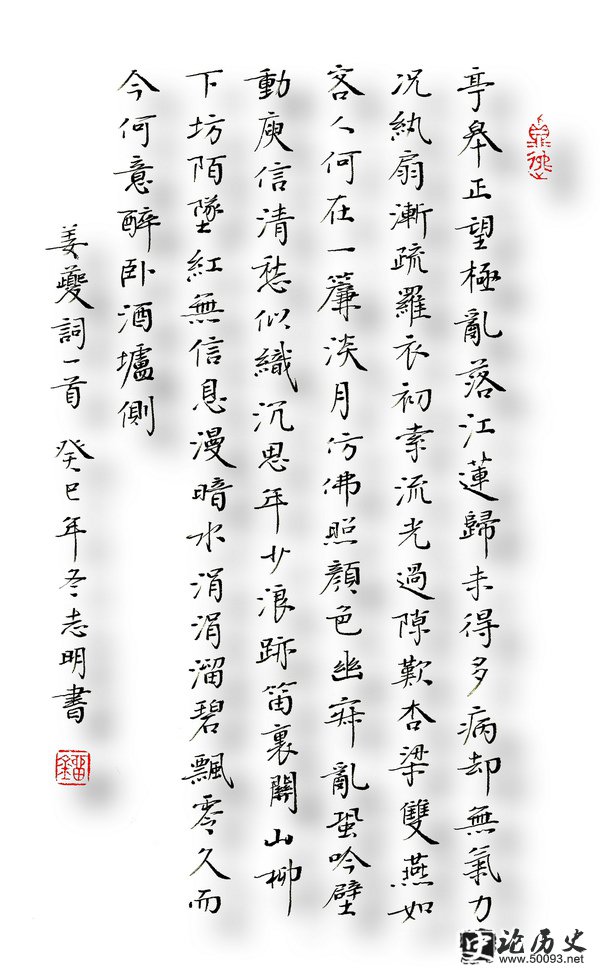 亭皋正望極亂落江蓮歸未得多病却無氣力
况紈扇漸疏羅衣初索流光過隙歎杏梁雙燕如
客人何在一簾淡月仿佛照顏色幽寂亂蛩吟壁
動庾信清愁似織沉思年少浪跡笛裏關山柳
下坊陌墜紅無信息漫暗水涓涓溜碧飄零久而
今何意醉卧酒壚側
姜夔詞一首 癸巳年冬志明書
论历史
www.50093.net